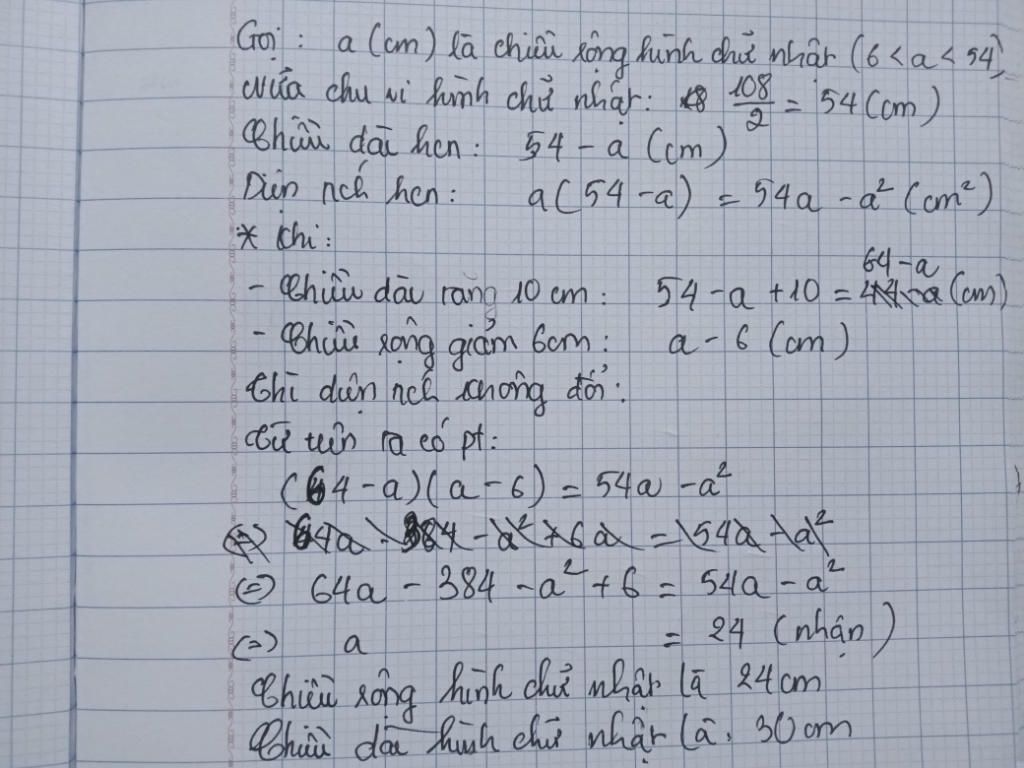 Gọi : a (cm) là chiều rộng hình chữ nhật (6 < a < 54)
Nửa chu vi hình chữ nhật: 108/2 = 54 (cm)
Chiều dài hcn : 54 - a (cm)
Diện tích hcn : a(54 - a) = 54a - a² (cm²)
* Khi :
- Chiều dài tăng 10 cm : 54 - a + 10 = 64 - a (cm)
- Chiều rộng giảm 6cm : a - 6 (cm)
Thì diện tích không đổi :
Từ trên ta có pt :
(64 - a)(a - 6) = 54a - a²
(=) 64a - 384 - a² + 6a = 54a - a²
(=) 64a - 384 - a² + 6 = 54a - a²
(=) a = 24 (nhận)
Chiều rộng hình chữ nhật là 24cm
Chiều dài hình chữ nhật là. 30cm